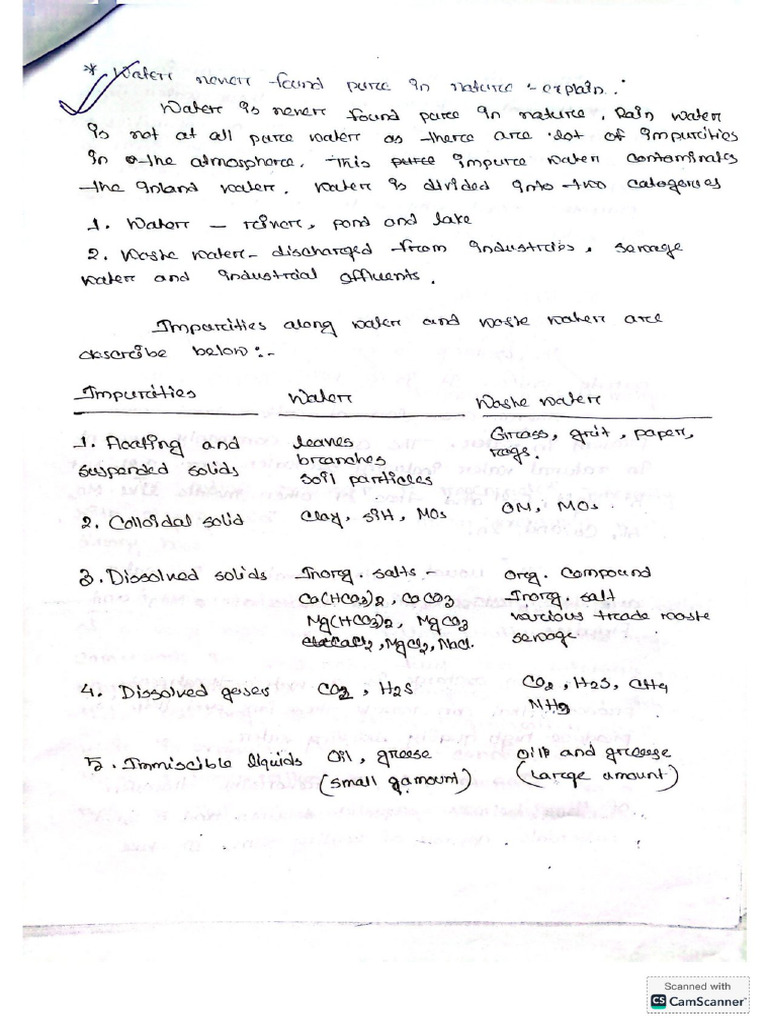 * Water never found pure in nature :- explain.
Water is never found pure in nature. Rain water
is not at all pure water as there are lot of impurities
in the atmosphere. This pure impure water contaminates
the inland water. Water is divided into two catogeries
1. Water – river, pond and lake
2. Waste water – discharged from industries, sewage
water and industrial effluents.
Impurities along water and waste water are
describe below:-
Impurities Water Waste water
1. Floating and suspended solids
leaves
branches
soil particles
Grass, grit, paper,
rags.
2. Colloidal solid Clay, silt, MOs OM, MOs.
3. Dissolved solids
Inorg. salts –
Ca(HCO3)2, CaCO3
Mg(HCO3)2, MgCO3
CaCl2, MgCl2, NaCl.
Org. Compound
Inorg. salt
various trade waste
sewage
4. Dissolved geses CO2, H2S CO2, H2S, CH4
NH3
5. Immiscible liquids Oil, greese
(small amount)
Oils and greese
(large amount)
Scanned with
CS CamScanner